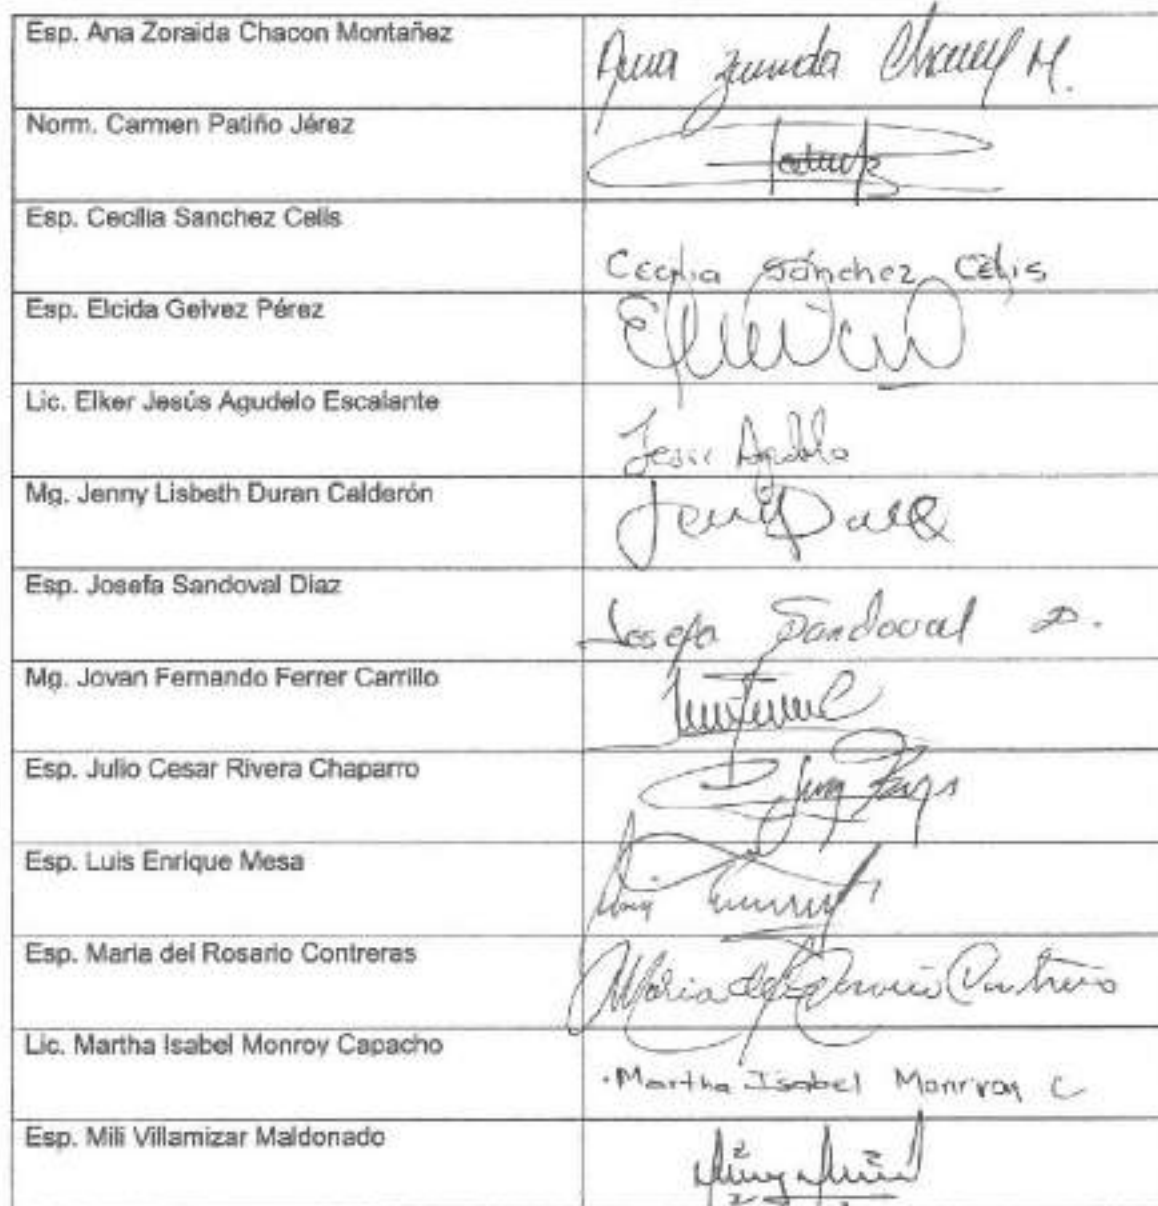 Esp. Ana Zoraida Chacon Montañez
Ana Chacon M.
Norm. Carmen Patiño Jérez
Esp. Cecilia Sanchez Celis
Cecilia Sánchez Celis
Esp. Elcida Gelvez Pérez
Lic. Elker Jesús Agudelo Escalante
Jesus Agudelo
Mg. Jenny Lisbeth Duran Calderón
Esp. Josefa Sandoval Diaz
Josefa Sandoval D.
Mg. Jovan Fernando Ferrer Carrillo
Esp. Julio Cesar Rivera Chaparro
Esp. Luis Enrique Mesa
Esp. Maria del Rosario Contreras
Maria del Rosario Contreras
Lic. Martha Isabel Monroy Capacho
Martha Isabel Monroy C
Esp. Mili Villamizar Maldonado